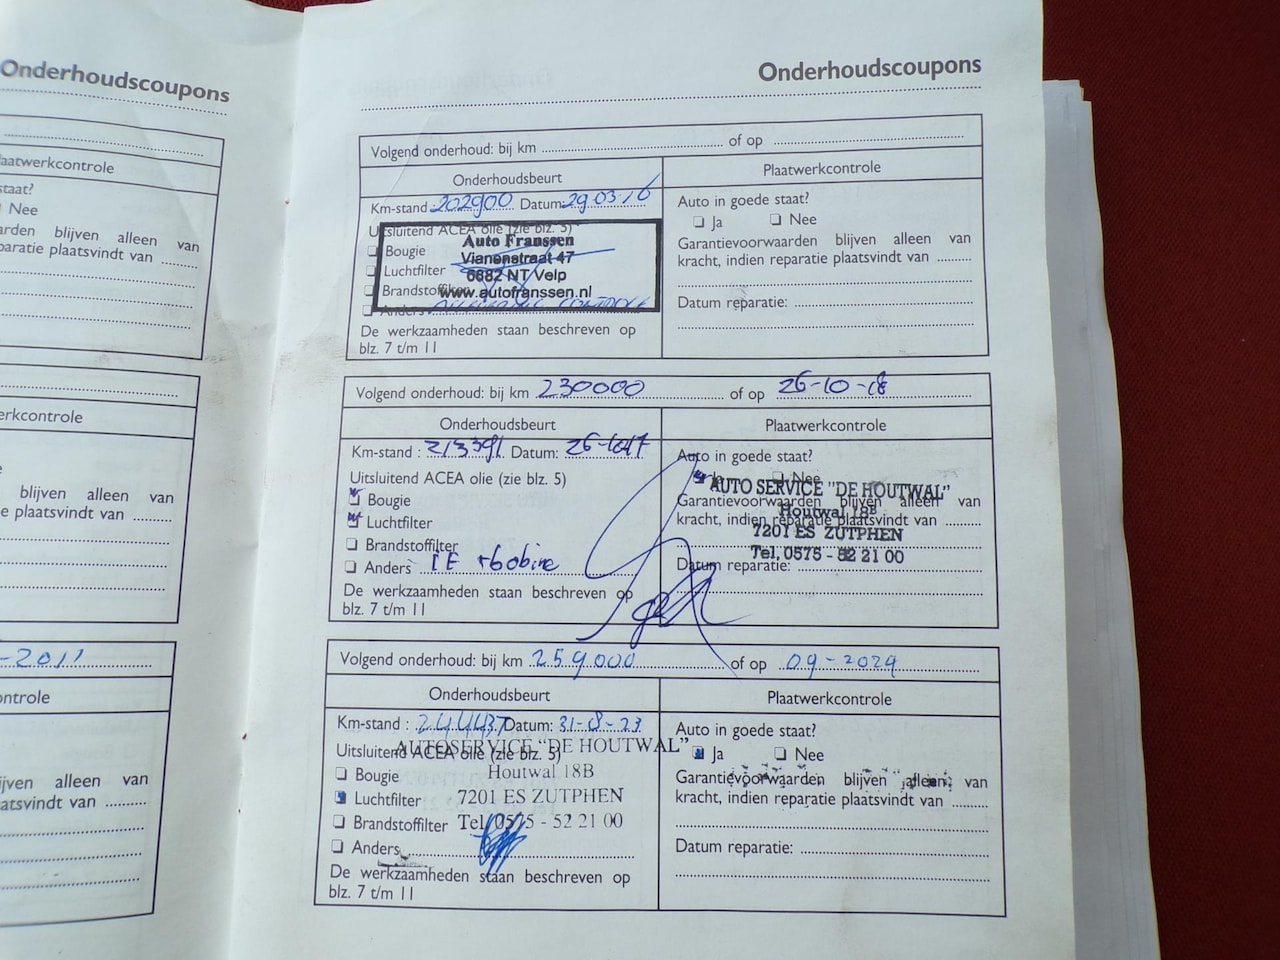 Onderhoudscoupons
aatwerkcontrole
staat?
Nee
arden blijven alleen van
paratie plaatsvindt van
erkcontrole
blijven alleen van
e plaatsvindt van
-2011
ontrole
ijven alleen van
aatsvindt van
Onderhoudscoupons
Volgend onderhoud: bij km of op
Onderhoudsbeurt
Plaatwerkcontrole
Km-stand 202900 Datum: 29 03 16
Uitsluitend ACEA olie (zie blz. 5)
Auto Franssen
Vianenstraat 47
6882 NT Velp
www.autofranssen.nl
Bougie
Luchtfilter
Brandstoffilter
Anders
De werkzaamheden staan beschreven op
blz. 7 t/m 11
Auto in goede staat?
Ja Nee
Garantievoorwaarden blijven alleen van
kracht, indien reparatie plaatsvindt van
Datum reparatie:
Volgend onderhoud: bij km 230000 of op 26-10-18
Onderhoudsbeurt
Plaatwerkcontrole
Km-stand : 213391 Datum: 26-10-17
Uitsluitend ACEA olie (zie blz. 5)
Bougie
Luchtfilter
Brandstoffilter
Anders
De werkzaamheden staan beschreven op
blz. 7 t/m 11
Auto in goede staat?
Ja Nee
Garantievoorwaarden blijven alleen van
kracht, indien reparatie plaatsvindt van
Datum reparatie:
AUTO SERVICE "DE HOUTWAL"
Houtwal 18B
7201 ES ZUTPHEN
Tel. 0575 - 52 21 00
Volgend onderhoud: bij km 259000 of op 09-2024
Onderhoudsbeurt
Plaatwerkcontrole
Km-stand : 244437 Datum: 31-8-23
Uitsluitend ACEA olie (zie blz. 5)
AUTOSERVICE "DE HOUTWAL"
Houtwal 18B
7201 ES ZUTPHEN
Tel. 0575 - 52 21 00
Bougie
Luchtfilter
Brandstoffilter
Anders
De werkzaamheden staan beschreven op
blz. 7 t/m 11
Auto in goede staat?
Ja Nee
Garantievoorwaarden blijven alleen van
kracht, indien reparatie plaatsvindt van
Datum reparatie: